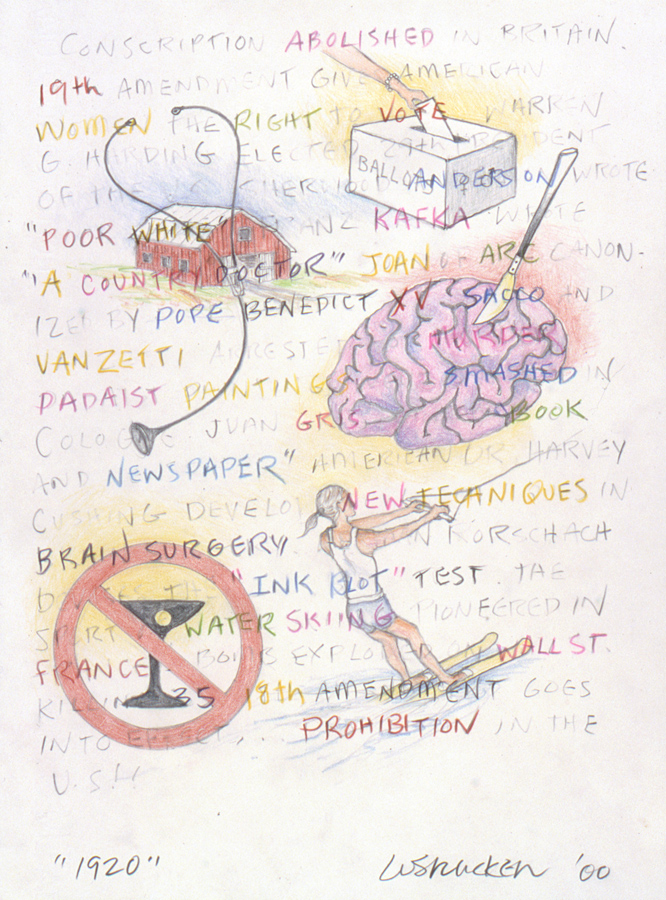 CONSCRIPTION ABOLISHED IN BRITAIN.
19th AMENDMENT GIVES AMERICAN
WOMEN THE RIGHT TO VOTE WARREN
G. HARDING ELECTED 29th PRESIDENT
OF THE U.S. SHERWOOD ANDERSON WROTE
"POOR WHITE" FRANZ KAFKA WROTE
"A COUNTRY DOCTOR" JOAN OF ARC CANON-
IZED BY POPE BENEDICT XV SACCO AND
VANZETTI ARRESTED MURDER
DADAIST PAINTINGS SMASHED IN
COLOGNE. JUAN GRIS BOOK
AND NEWSPAPER" AMERICAN DR. HARVEY
CUSHING DEVELOPS NEW TECHNIQUES IN
BRAIN SURGERY. RORSCHACH
"INK BLOT" TEST. THE
SPORT OF WATER SKIING PIONEERED IN
FRANCE. BOMB EXPLODED ON WALL ST.
KILLING 35 18th AMENDMENT GOES
INTO EFFECT,... PROHIBITION IN THE
U.S!!
"1920" '00